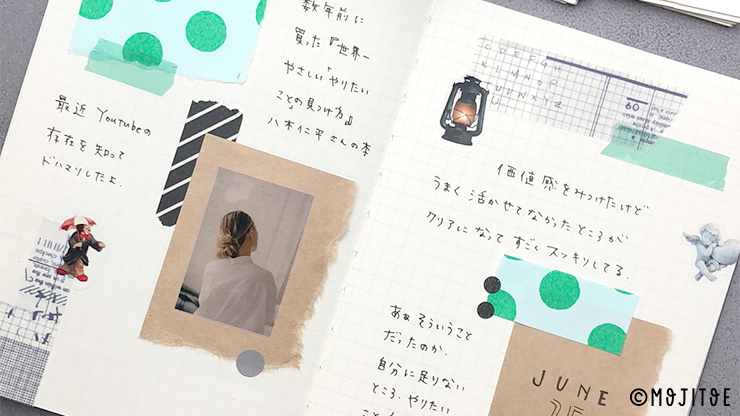 数年前に
買った『世界一
やさしい「やりたい
ことの見つけ方』
八木仁平さんの本
最近 Youtubeの
存在を知って
ドハマりしたよ.
価値感をみつけたけど
うまく活かせてなかったところが
クリアになって すごくスッキリしてる.
あぁ そういうこと
だったのか.
自分に足りない
ところ. やりたい
JUNE
©MOJITOE